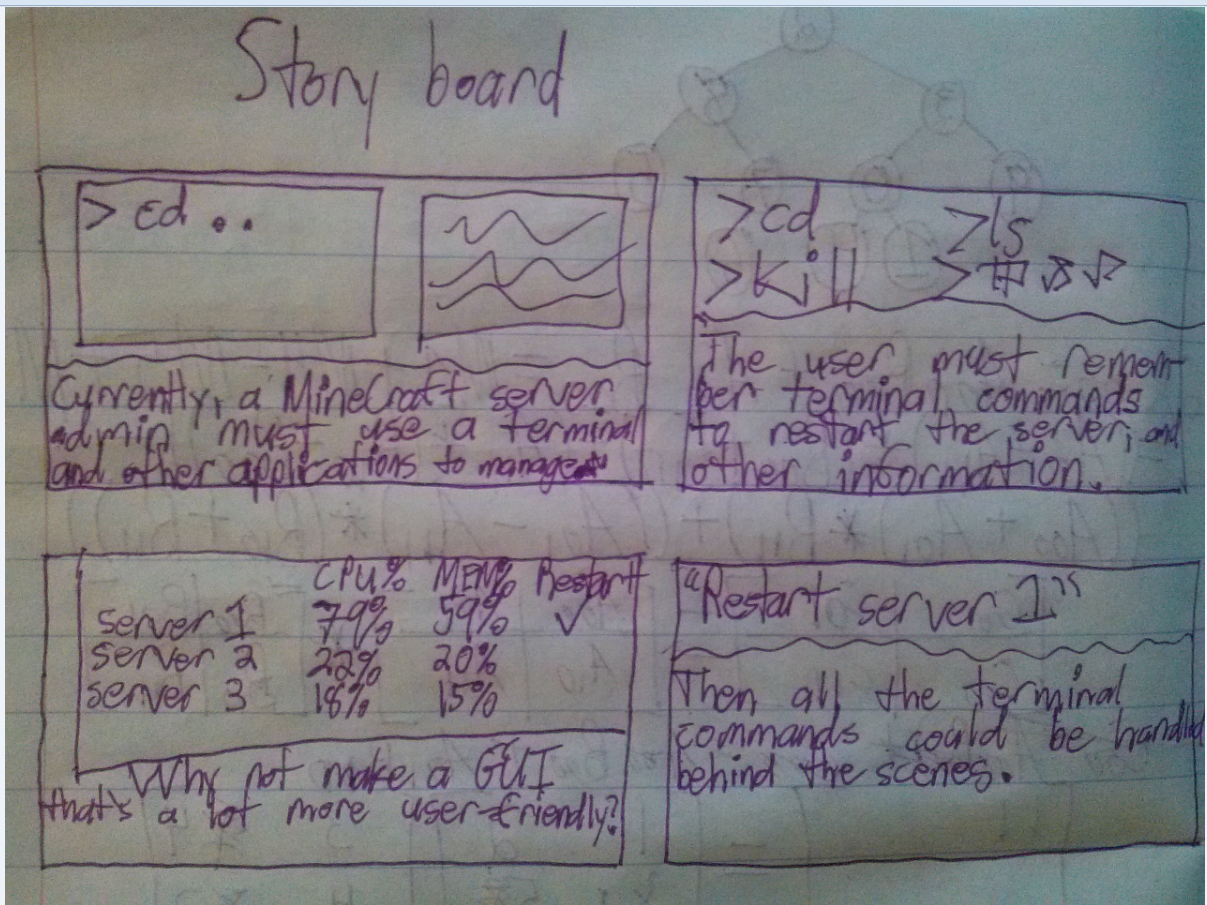 Story board
> cd ..
Currently, a MineCraft server
admin must use a terminal
and other applications to manage
>cd >ls
>kill >#
The user must remem
ber terminal commands
to restart the server, and
other information.
CPU% MEM% Restart
server 1 79% 59% ✓
server 2 22% 20%
server 3 18% 15%
Why not make a GUI
that's a lot more user-friendly?
"Restart server 1"
Then all the terminal
commands could be handled
behind the scenes.